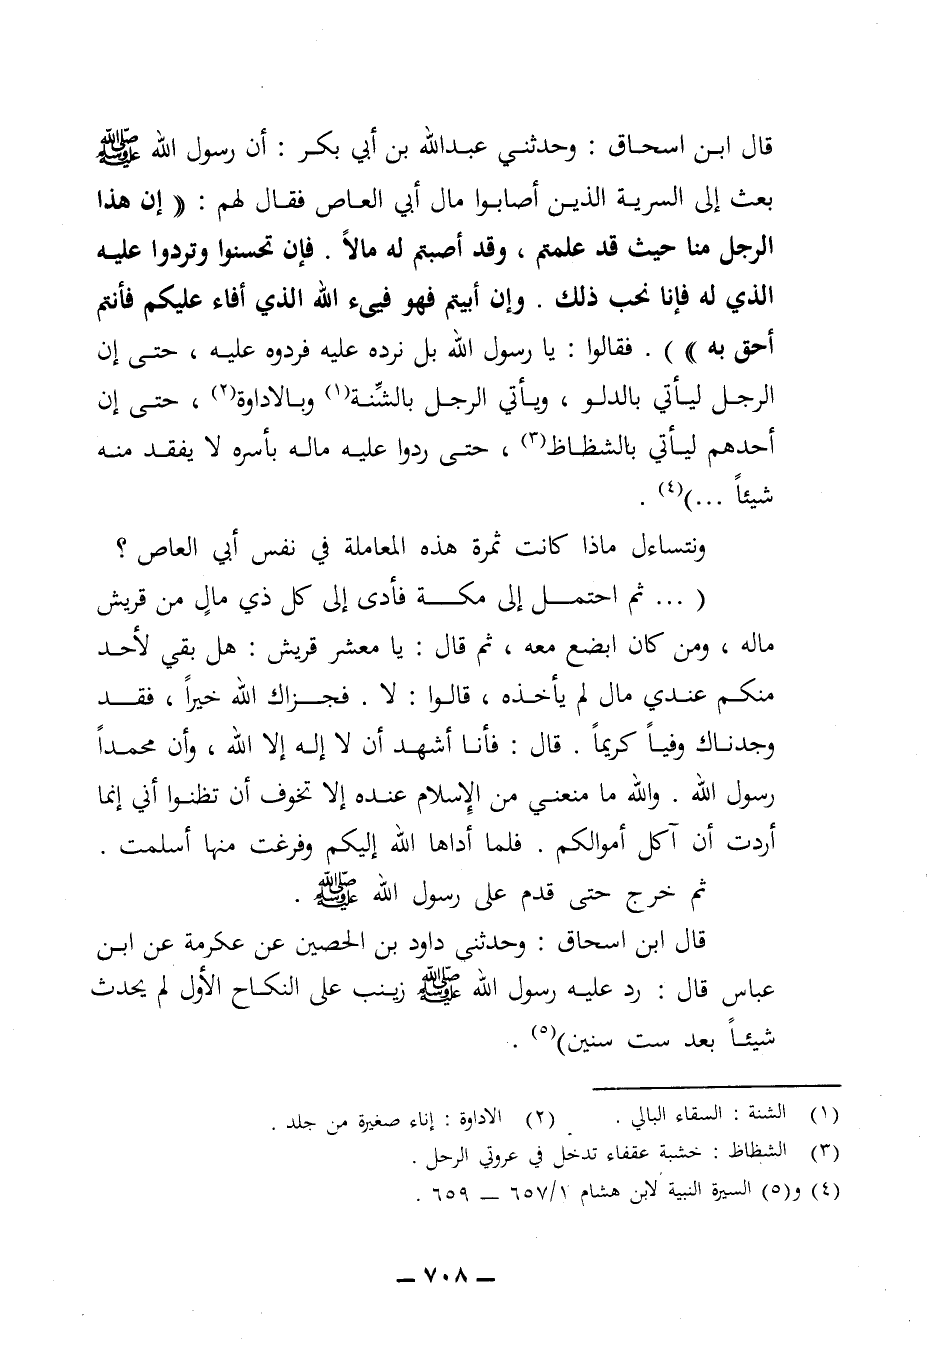 قال ابن اسحاق : وحدثني عبدالله بن أبي بكر : أن رسول الله ﷺ
بعث إلى السرية الذين أصابوا مال أبي العاص فقال لهم : « إن هذا
الرجل منا حيث قد علمتم ، وقد أصبتم له مالاً . فإن تحسنوا وتردوا عليه
الذي له فإنا نحب ذلك . وإن أبيتم فهو فيىء الله الذي أفاء عليكم فأنتم
أحق به » ) . فقالوا : يا رسول الله بل نرده عليه فردوه عليه ، حتى إن
الرجل ليأتي بالدلو ، ويأتي الرجل بالشَّنة(١) وبالاداوة(٢) ، حتى إن
أحدهم ليأتي بالشظاظ(٣) ، حتى ردوا عليه ماله بأسره لا يفقد منه
شيئاً ...)(٤) .
ونتساءل ماذا كانت ثمرة هذه المعاملة في نفس أبي العاص ؟
( ... ثم احتمل إلى مكة فأدى إلى كل ذي مالٍ من قريش
ماله ، ومن كان ابضع معه ، ثم قال : يا معشر قريش : هل بقي لأحد
منكم عندي مال لم يأخذه ، قالوا : لا . فجزاك الله خيراً ، فقد
وجدناك وفياً كريماً . قال : فأنا أشهد أن لا إله إلا الله ، وأن محمداً
رسول الله . والله ما منعني من الإسلام عنده إلا تخوف أن تظنوا أني إنما
أردت أن آكل أموالكم . فلما أداها الله إليكم وفرغت منها أسلمت .
ثم خرج حتى قدم على رسول الله ﷺ .
قال ابن اسحاق : وحدثني داود بن الحصين عن عكرمة عن ابن
عباس قال : رد عليه رسول الله ﷺ زينب على النكاح الأول لم يحدث
شيئاً بعد ست سنين)(٥) .
(١) الشنة : السقاء البالي . (٢) الاداوة : إناء صغيرة من جلد .
(٣) الشظاظ : خشبة عقفاء تدخل في عروتي الرحل .
(٤) و(٥) السيرة النبية لابن هشام ٦٥٧/١ ــ ٦٥٩ .
ــ ٧٠٨ ــ